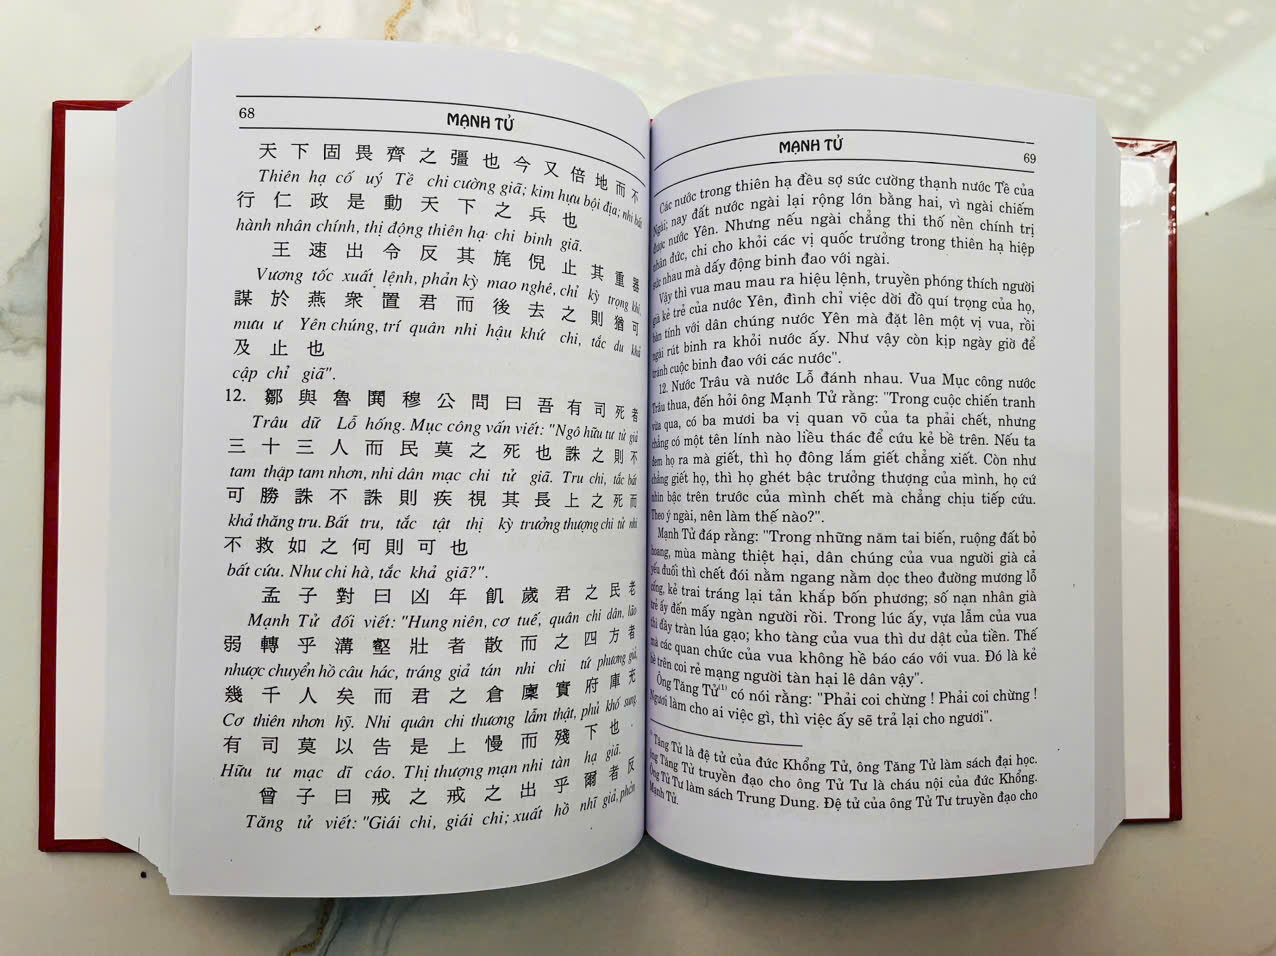 68
MẠNH TỬ
天下固畏齊之彊也今又倍地而不
Thiên hạ cố uý Tề chi cường giã; kim hựu bội địa; nhi bất
行仁政是動天下之兵也
hành nhân chính, thị động thiên hạ chi binh giã.
王速出令反其旄倪止其重器
Vương tốc xuất lệnh, phản kỳ mao nghê, chỉ kỳ trọng khí,
謀於燕衆置君而後去之則猶可
mưu ư Yên chúng, trí quân nhi hậu khứ chi, tắc du khả
及止也
cập chỉ giã".
12. 鄒與魯鬨穆公問曰吾有司死者
Trâu dữ Lỗ hống. Mục công vấn viết: "Ngô hữu tư tử giả
三十三人而民莫之死也誅之則不
tam thập tam nhơn, nhi dân mạc chi tử giã. Tru chi, tắc bất
可勝誅不誅則疾視其長上之死而
khả thăng tru. Bất tru, tắc tật thị kỳ trưởng thượng chi tử nhi
不救如之何則可也
bất cứu. Như chi hà, tắc khả giã?".
孟子對曰凶年飢歲君之民老
Mạnh Tử đối viết: "Hung niên, cơ tuế, quân chi dân, lão
弱轉乎溝壑壯者散而之四方者
nhược chuyển hồ câu hác, tráng giả tán nhi chi tứ phương giả,
幾千人矣而君之倉廩實府庫充
Cơ thiên nhơn hỹ. Nhi quân chi thương lẫm thật, phủ khố sung,
有司莫以告是上慢而殘下也.
Hữu tư mạc dĩ cáo. Thị thượng mạn nhi tàn hạ giã.
曾子曰戒之戒之出乎爾者反
Tăng tử viết: "Giái chi, giái chi; xuất hồ nhĩ giả, phản
MẠNH TỬ
69
Các nước trong thiên hạ đều sợ sức cường thạnh nước Tề của
Ngài; nay đất nước ngài lại rộng lớn bằng hai, vì ngài chiếm
được nước Yên. Nhưng nếu ngài chẳng thi thố nền chính trị
nhân đức, chi cho khỏi các vị quốc trưởng trong thiên hạ hiệp
sức nhau mà dấy động binh đao với ngài.
Vậy thì vua mau mau ra hiệu lệnh, truyền phóng thích người
già kẻ trẻ của nước Yên, đình chỉ việc dời đồ quí trọng của họ,
bàn tính với dân chúng nước Yên mà đặt lên một vị vua, rồi
ngài rút binh ra khỏi nước ấy. Như vậy còn kịp ngày giờ để
tránh cuộc binh đao với các nước".
12. Nước Trâu và nước Lỗ đánh nhau. Vua Mục công nước
Trâu thua, đến hỏi ông Mạnh Tử rằng: "Trong cuộc chiến tranh
vừa qua, có ba mươi ba vị quan võ của ta phải chết, nhưng
chẳng có một tên lính nào liều thác để cứu kẻ bề trên. Nếu ta
đem họ ra mà giết, thì họ đông lắm giết chẳng xiết. Còn như
chẳng giết họ, thì họ ghét bậc trưởng thượng của mình, họ cứ
nhìn bậc trên trước của mình chết mà chẳng chịu tiếp cứu.
Theo ý ngài, nên làm thế nào?".
Mạnh Tử đáp rằng: "Trong những năm tai biến, ruộng đất bỏ
hoang, mùa màng thiệt hại, dân chúng của vua người già cả
yếu đuối thì chết đói nằm ngang nằm dọc theo đường mương lỗ
cống, kẻ trai tráng lại tản khắp bốn phương; số nạn nhân già
trẻ ấy đến mấy ngàn người rồi. Trong lúc ấy, vựa lẫm của vua
thì đầy tràn lúa gạo; kho tàng của vua thì dư dật của tiền. Thế
mà các quan chức của vua không hề báo cáo với vua. Đó là kẻ
bề trên coi rẻ mạng người tàn hại lê dân vậy".
Ông Tăng Tử(1) có nói rằng: "Phải coi chừng ! Phải coi chừng !
Ngươi làm cho ai việc gì, thì việc ấy sẽ trả lại cho ngươi".
Tăng Tử là đệ tử của đức Khổng Tử, ông Tăng Tử làm sách đại học.
ông Tăng Tử truyền đạo cho ông Tử Tư là cháu nội của đức Khổng.
Ông Tử Tư làm sách Trung Dung. Đệ tử của ông Tử Tư truyền đạo cho
Mạnh Tử.